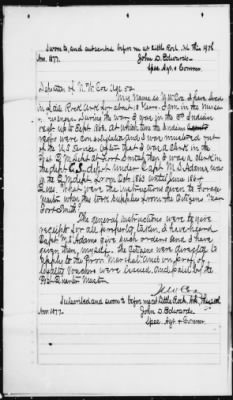 Sworn to, and subscribed before me at Little Rock Ark this 19th
Nov. 1877.
John D. Edwards
Spec. Agt. & Commr.
Deposition of N. W. Cox Age 50
My Name is N W Cox I have lived
in Little Rock Ark for about
During the war I was in the 3d Indian
regt up to Sept 1863, at which time the Indian
regts were consolidated and I was mustered out
of the U.S. Service. After that I was a Clerk in the
at Fort Smith, then I was a Clerk in
the dept under Capt. M. S. Adams, who
1863 until June 1864.
Ques. What were the instructions given to forage
Masters who took supplies from the Citizens near
Fort Smith
The general instructions were to give
receipt for all property taken, I have heard
Capt M. S. Adams give such orders and I have
given them myself. The Citizens were directed to
apply to the Prov. Marshal and on proof of
loyalty vouchers were issued and paid by the
Quarter Master
N W Cox
Subscribed and sworn to before me at Little Rock, Ark,
Nov 1877.
John D. Edwards
Spec. Agt. & Commr.